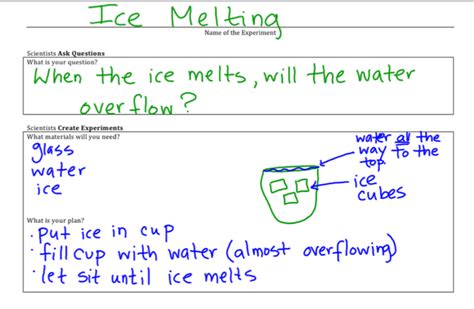 Ice Melting
Name of the Experiment
Scientists Ask Questions
What is your question?
When the ice melts, will the water
overflow?
Scientists Create Experiments
What materials will you need?
glass
water
ice
water all the
way to the
top
ice
cubes
What is your plan?
• put ice in cup
• fill cup with water (almost overflowing)
• let sit until ice melts